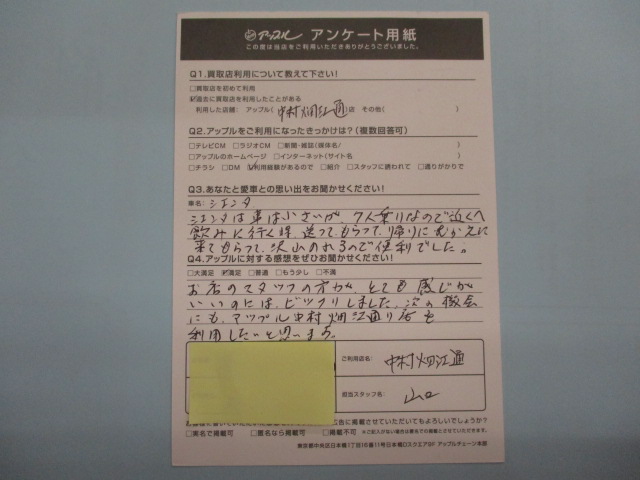 アップル アンケート用紙
この度は当店をご利用いただきありがとうございました。
Q1.買取店利用について教えて下さい！
□買取店を初めて利用
☑過去に買取店を利用したことがある
利用した店舗： アップル（中村畑江通）店 その他（ ）
Q2.アップルをご利用になったきっかけは？（複数回答可）
□テレビCM □ラジオCM □新聞・雑誌（媒体名/ ）
□アップルのホームページ □インターネット（サイト名 ）
□チラシ □DM ☑利用経験があるので □紹介 □スタッフに誘われて □通りがかりで
Q3.あなたと愛車との思い出をお聞かせください！
車名：シエンタ
シエンタは車は小さいが、7人乗りなので近くへ
飲みに行く時、送ってもらって、帰りにむかえに
来てもらって、沢山のれるので便利でした。
Q4.アップルに対する感想をぜひお聞かせください！
□大満足 ☑満足 □普通 □もう少し □不満
お店のスタッフの方が、とても感じが
いいのには、ビックリしました。次の機会
にも、アップル中村畑江通り店を
利用したいと思います。
ご利用店名： 中村畑江通
担当スタッフ名： 山口
告に掲載させていただいてもよろしいでしょうか？
□実名で掲載可 □匿名なら掲載可 □掲載不可 ※ご記入がない場合は匿名での掲載とさせていただきます。
東京都中央区日本橋1丁目16番11号日本橋Dスクエア8F アップルチェーン本部